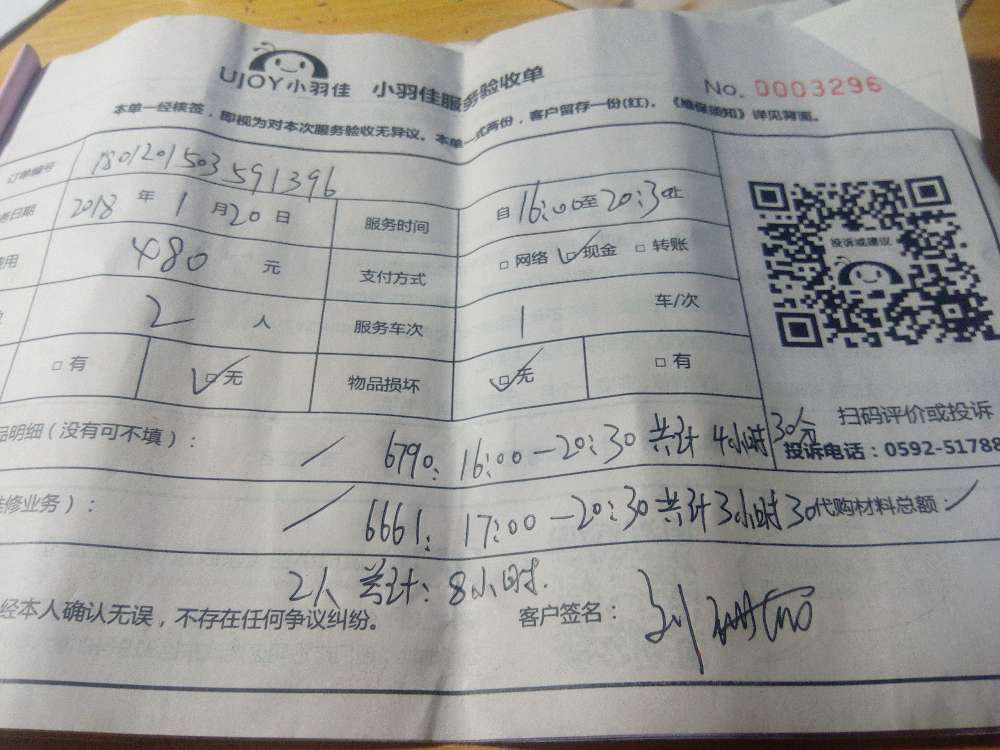 UJOY小羽佳 小羽佳服务验收单 No. 0003296
本单一经核签，即视为对本次服务验收无异议。本单一式两份，客户留存一份(红)。《维保须知》详见背面。
订单编号 1801201503591396
务日期 2018 年 1 月 20 日 服务时间 自 16:00 至 20:30 止
费用 480 元 支付方式 □ 网络 ☑ 现金 □ 转账
2 人 服务车次 1 车/次
□ 有 ☑ 无 物品损坏 ☑ 无 □ 有
投诉或建议
扫码评价或投诉
投诉电话：0592-51788
品明细(没有可不填)： / 6790: 16:00—20:30 共计 4小时30分
维修业务)： / 6661: 17:00—20:30 共计3小时30 代购材料总额： /
2人 共计: 8小时.
经本人确认无误，不存在任何争议纠纷。 客户签名： 刘